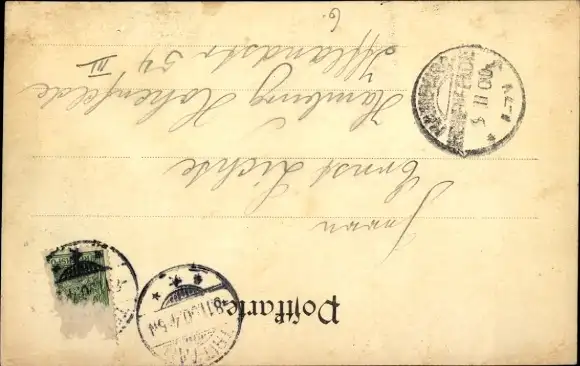 Postkarte
Herrn
Ernst Lichte
Hamburg Hohenfelde
Ifflandstr 54 III
6.
8.11.00.4-5N
9 11 00